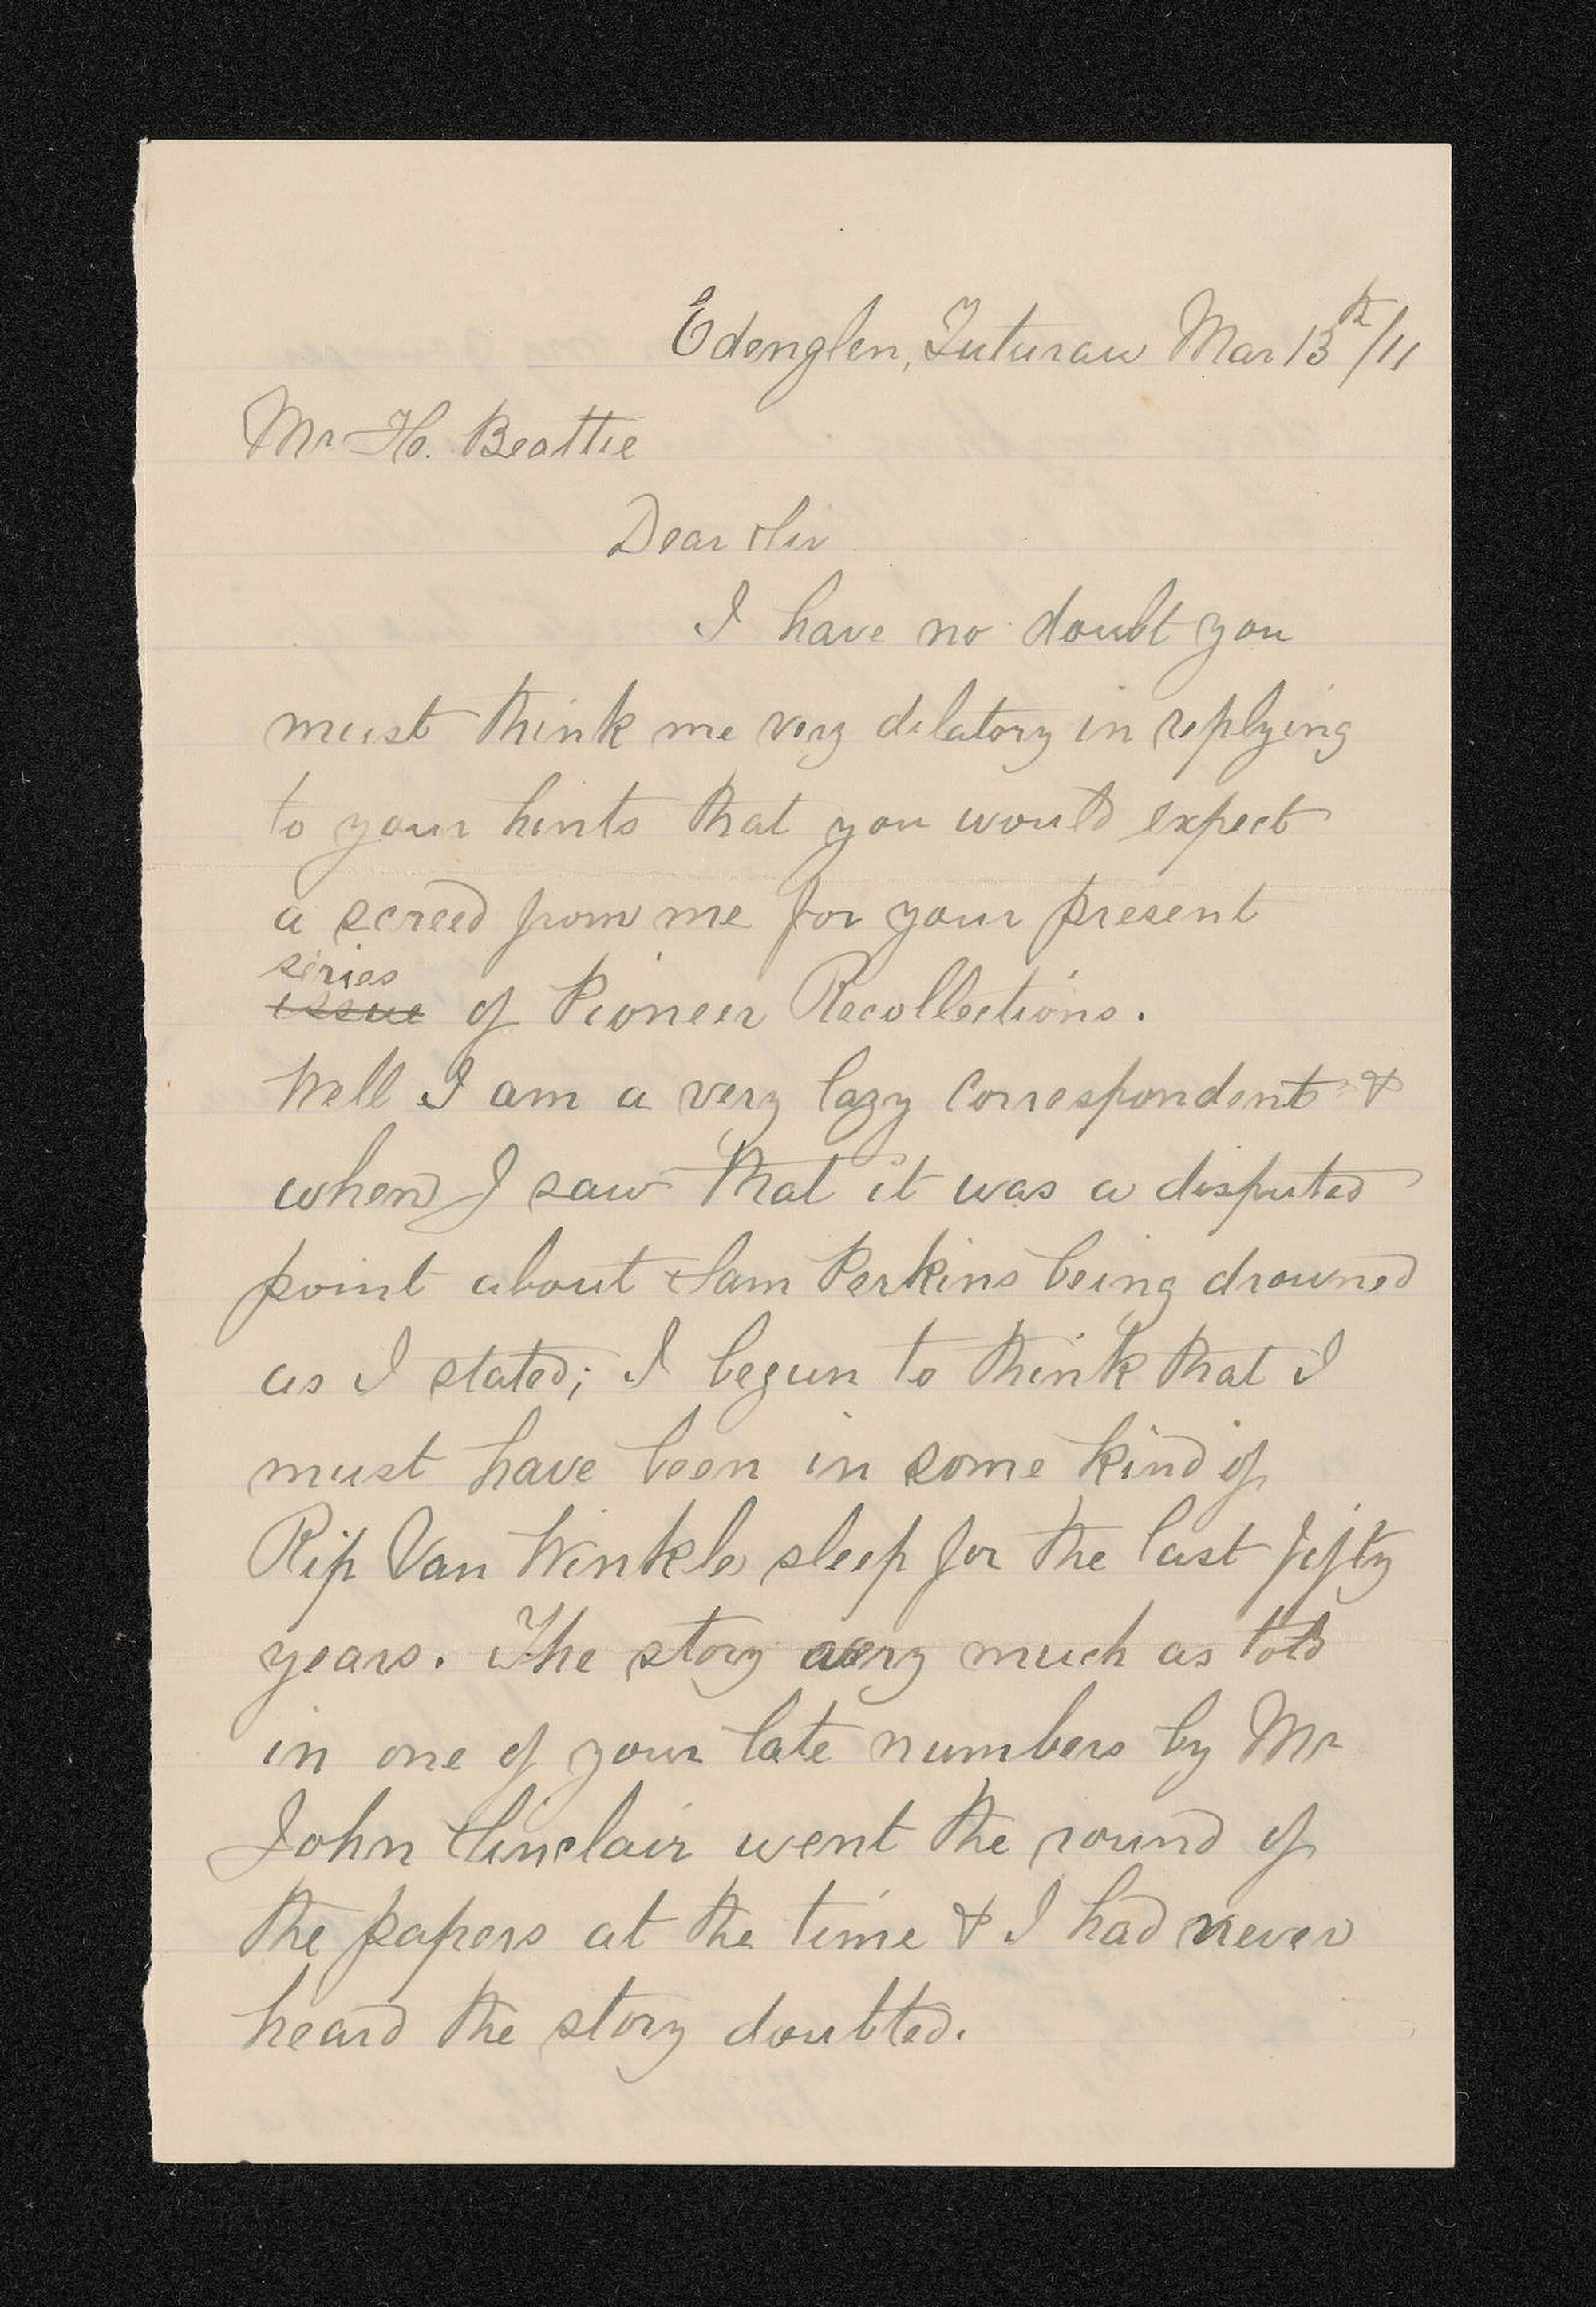 Edenglen, Tuturau Mar 13th/11
Mr H. Beattie
Dear Sir
I have no doubt you
must think me very dilatory in replying
to your hints that you would expect
a screed from me for your present
series
issue of Pioneer Recollections.
Well I am a very lazy Correspondent &
when I saw that it was a disputed
point about Sam Perkins being drowned
as I stated; I begun to think that I
must have been in some kind of
Rip Van Winkle sleep for the last fifty
years. The story very much as told
in one of your late numbers by Mr
John Sinclair went the round of
the papers at the time & I had never
heard the story doubted.